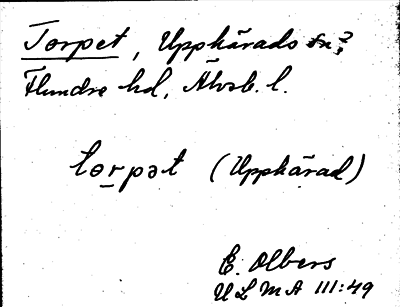 Torpet, Uppkärads sn?
Flundre hd, Älvsb. l.
tɵrpət (Uppkärad)
E. Olbers
ULMA 111:49